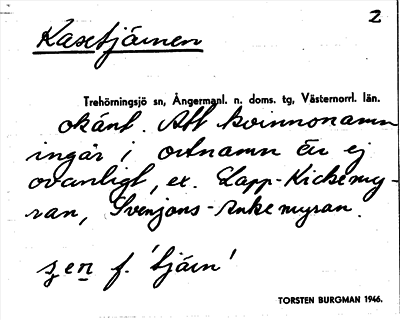 2
Kasetjärnen
Trehörningsjö sn, Ångermanl. n. doms. tg, Västernorrl. län.
okänt. Att kvinnonamn
ingår i ortnamn är ej
ovanligt, ex. Lapp-Kickemy-
ran, Svenjons-Ankemyran.
gen f. 'tjärn'
TORSTEN BURGMAN 1946.